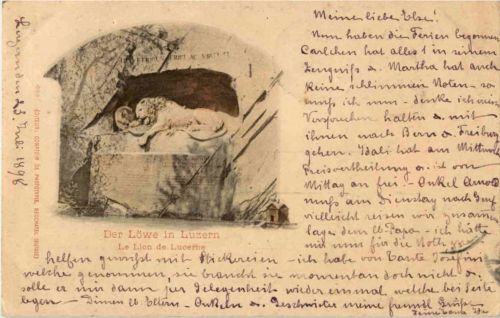 Meine liebe Else!
Nun haben die Ferien begonnen
Carlchen hat alles 1 in seinem
Zeugniss & Martha hat auch
keine schlimmen Noten - so
muss ich nun - denke ich mein
Versprechen halten & mit
ihnen nach Bern & Freiburg
gehen. Bali hat am Mittwoch
Preisvertheilung & ist von
Mittag an frei - Onkel Arnold
muss am Dienstag nach Genf
vielleicht reisen wir zusammen
Papa - ich hätte
mir nun für die Noth
helfen mit Stickereien - ich habe von Tante Josefine
welche genommen, sie braucht sie momentan doch nicht &
solle er mir dann per Gelegenheit wieder einmal welche bei Seite
legen - Deinen lb Eltern - Onkeln & Geschwister meine freundl Grüsse
Deine Tante
1898
EDITEUR, COMPTOIR DE PHOTOTYPIE, NEUCHATEL (SUISSE)
Der Löwe in Luzern
Le Lion de Lucerne